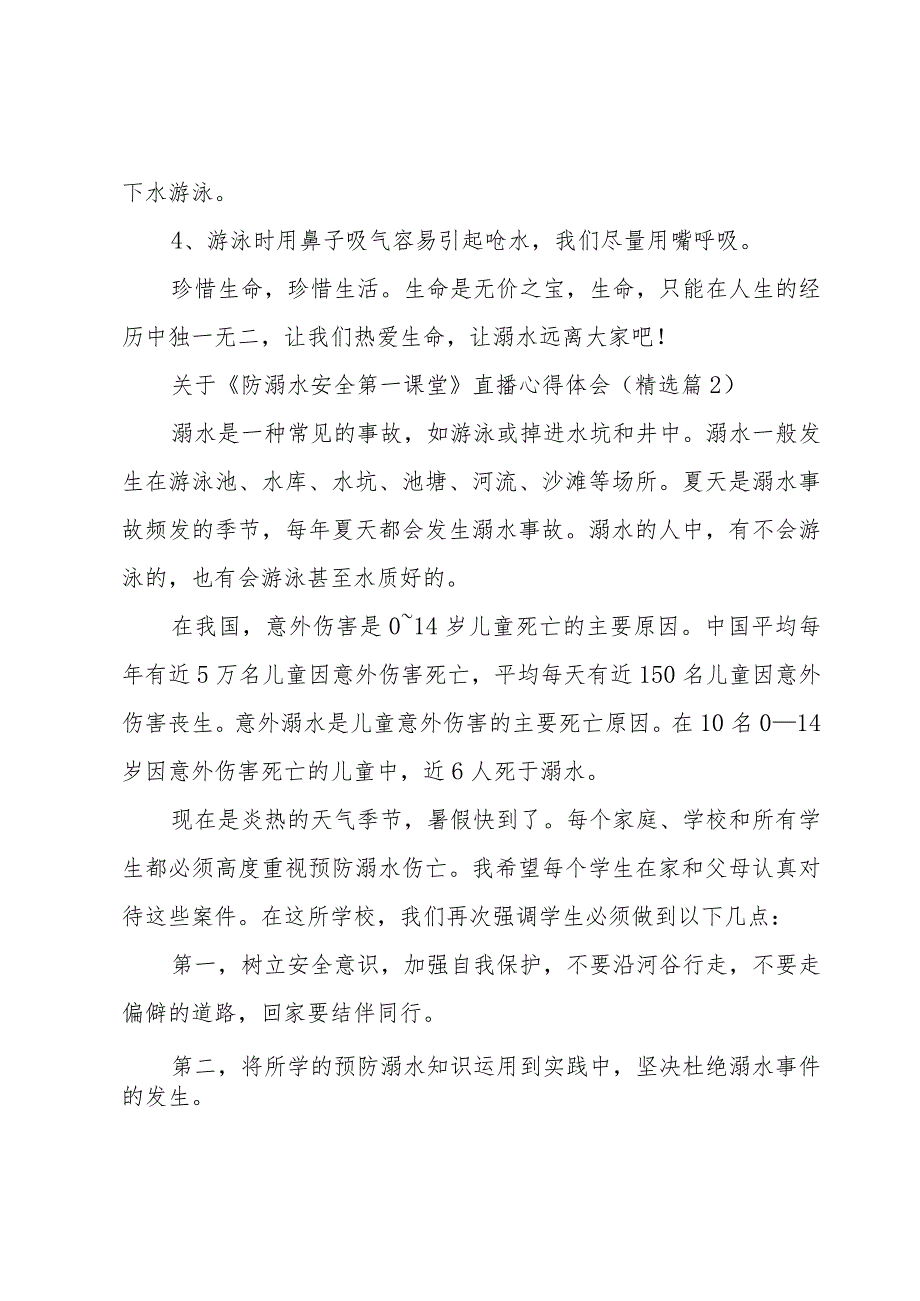 下水游泳。
4、游泳时用鼻子吸气容易引起呛水，我们尽量用嘴呼吸。
珍惜生命，珍惜生活。生命是无价之宝，生命，只能在人生的经
历中独一无二，让我们热爱生命，让溺水远离大家吧！
关于《防溺水安全第一课堂》直播心得体会（精选篇2）
溺水是一种常见的事故，如游泳或掉进水坑和井中。溺水一般发
生在游泳池、水库、水坑、池塘、河流、沙滩等场所。夏天是溺水事
故频发的季节，每年夏天都会发生溺水事故。溺水的人中，有不会游
泳的，也有会游泳甚至水质好的。
在我国，意外伤害是0~14岁儿童死亡的主要原因。中国平均每
年有近5万名儿童因意外伤害死亡，平均每天有近150名儿童因意外
伤害丧生。意外溺水是儿童意外伤害的主要死亡原因。在10名0—14
岁因意外伤害死亡的儿童中，近6人死于溺水。
现在是炎热的天气季节，暑假快到了。每个家庭、学校和所有学
生都必须高度重视预防溺水伤亡。我希望每个学生在家和父母认真对
待这些案件。在这所学校，我们再次强调学生必须做到以下几点：
第一，树立安全意识，加强自我保护，不要沿河谷行走，不要走
偏僻的道路，回家要结伴同行。
第二，将所学的预防溺水知识运用到实践中，坚决杜绝溺水事件
的发生。